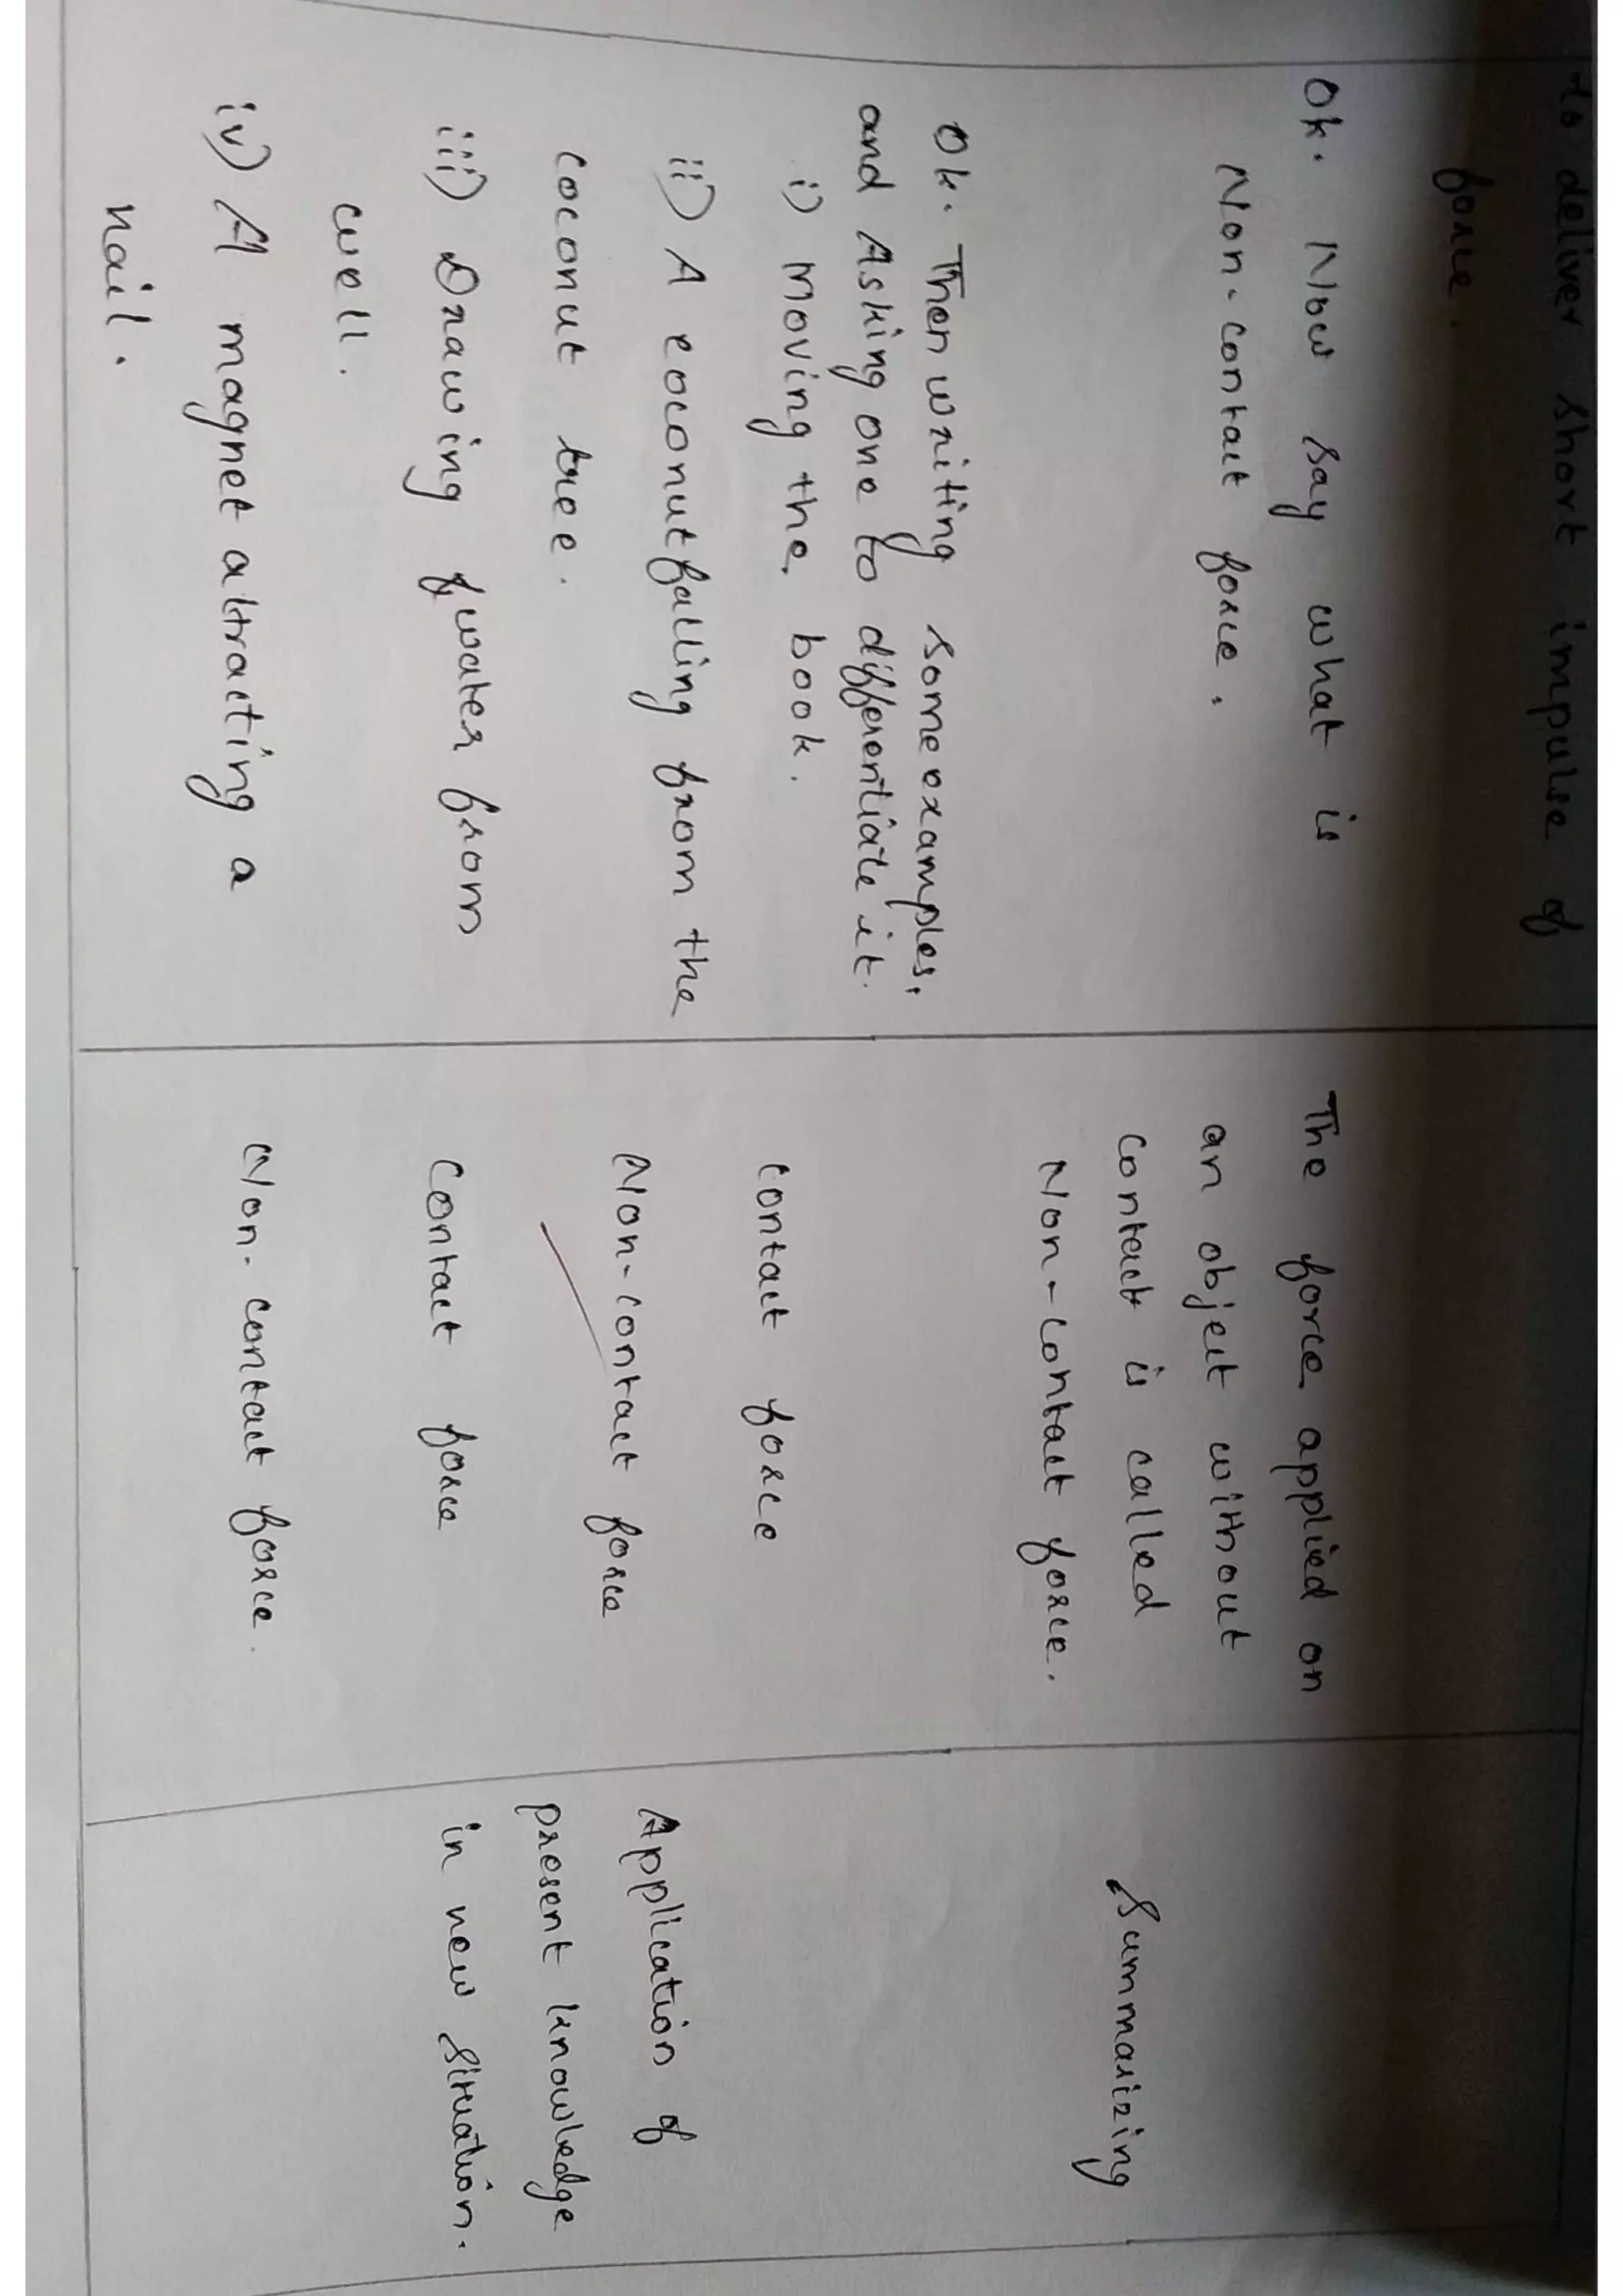 to deliver short impulse of
force.
Ok. Now say what is
Non-contact force.
Ok. Then writing some examples.
and Asking one to differentiate it.
i) Moving the book.
ii) A coconut falling from the
coconut tree.
iii) Drawing water from
well.
iv) A magnet attracting a
nail.
The force applied on
an object without
contact is called
Non-contact force.
contact force
Non-contact force
Contact force
Non-contact force.
Summarizing
Application of
present knowledge
in new situation.